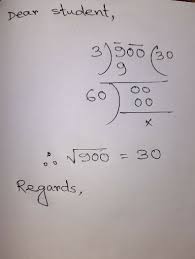 Dear student,
3)900(30
9
60)00
00
x
∴ √900 = 30
Regards,